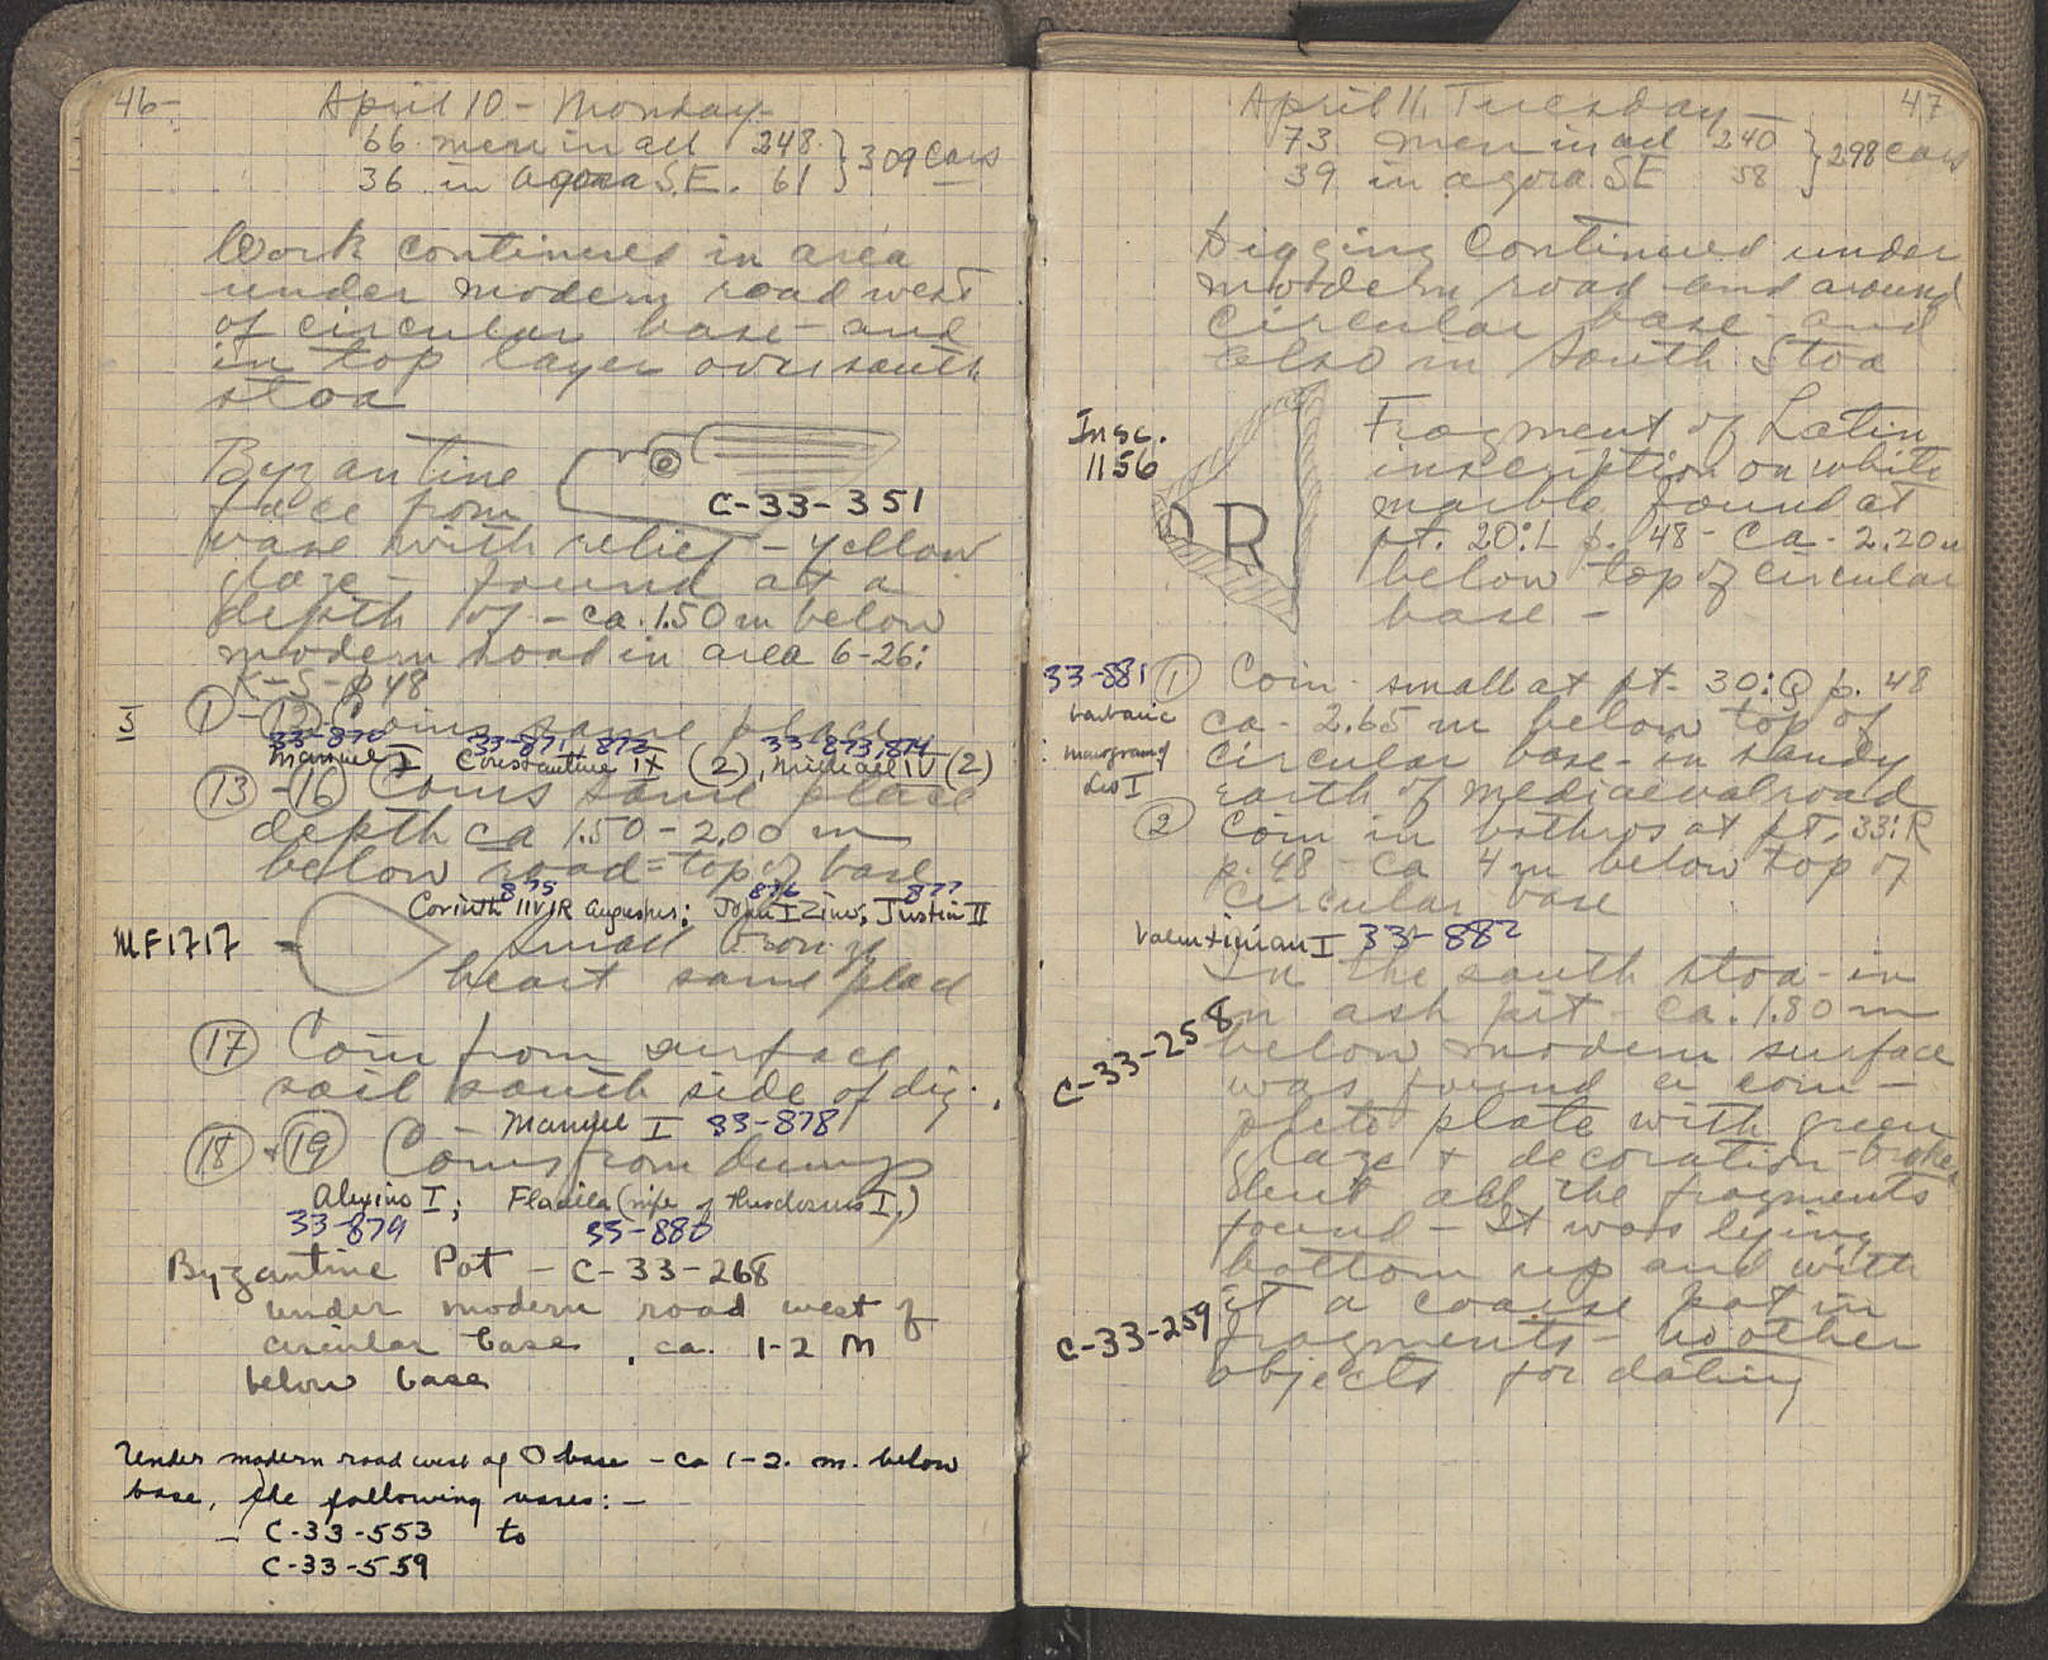 46-
April 10 - Monday-
66 men in all 248 } 309 Cars
36 in Agora S.E. 61
Work continued in area
under modern road west
of circular base - and
in top layer over south
stoa
Byzantine
face from
C-33-351
vase with relief - yellow
glaze - found at a
depth of - ca. 1.50 m below
modern road in area 6-26:
K-S - p 48
5
① - ⑫ Coins same place
33-870 33-871, 872 33-873, 874
Manuel I Constantine IX (2), Michael IV (2)
⑬ - ⑯ Coins same place
depth ca 1.50 - 2.00 m
below road = top of base
875 876 877
Corinth IIVIR Augustus; John I Zim; Justin II
MF1717
small bronze
heart same place
⑰ Coin from surface
soil south side of dig.
Manuel I 33-878
⑱ + ⑲ Coins from dump
Alexius I; Flacilla (wife of Theodosius I)
33-879 33-880
Byzantine Pot - C-33-268
under modern road west of
circular base, ca. 1-2 M
below base
Under modern road west of O base - ca 1-2. m. below
base, the following vases: -
- C-33-553 to
C-33-559
47
April 11, Tuesday -
73 men in all 240 } 298 cars
39 in agora SE 58
Digging continued under
modern road and around
circular base - and
also in South Stoa
Insc.
1156
OR
Fragment of Latin
inscription on white
marble found at
pt. 20:L p. 48 - ca. 2.20 m
below top of circular
base -
33-881 ① Coin - small at pt. 30:Q p. 48
barbaric
ca. 2.65 m below top of
monogram of
circular base - in sandy
Leo I
earth of mediaeval road
② Coin in bothros at pt. 33:R
p. 48 - ca 4 m below top of
circular base
Valentinian I 33-882
In the south stoa - in
an ash pit - ca. 1.80 m
C-33-258
below modern surface
was found a com-
plete plate with green
glaze + decoration - broken
but all the fragments
found - It was lying
bottom up and with
it a coarse pot in
C-33-259
fragments - no other
objects for dating